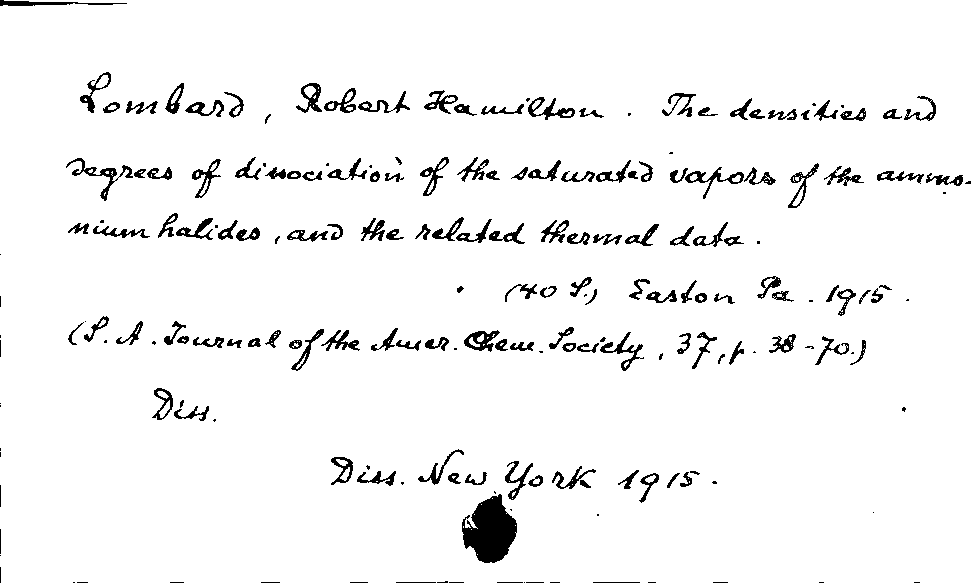 Lombard, Robert Hamilton. The densities and
degrees of dissociation of the saturated vapors of the ammo-
nium halides, and the related thermal data.
(40 S.) Easton Pa. 1915.
(S. A. Journal of the Amer. Chem. Society, 37, p. 38-70.)
Diss.
Diss. New York 1915.